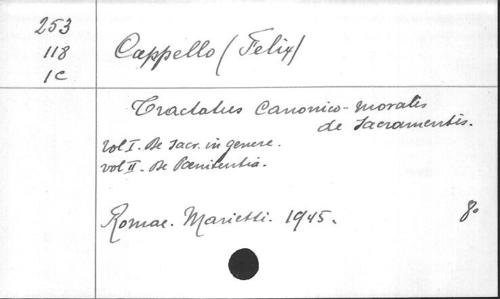 253
118
1C
Cappello (Felix)
Tractatus Canonico-moralis
de Sacramentis.
Vol I. De Sacr. in genere.
vol II. De Pœnitentia.
Romae. Marietti. 1945. 8º